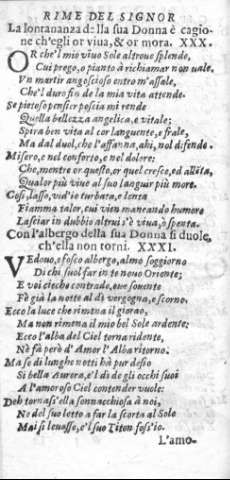 RIME DEL SIGNOR
La lontananza della sua Donna è cagio-
ne ch'egli or viua, & or mora. XXX.
OR che'l mio viuo Sole altroue splende,
Cui prego, o pianto à richiamar non vale,
Vn martir angoscioso entro m'assale,
Che'l duro fio de la mia vita attende.
Se pietoso pensier poscia mi rende
Quella bellezza angelica, e vitale;
Spira ben vita al cor languente, e frale,
Ma dal duol, che l'affanna, ahi, nol difende.
Misero, e nel conforto, e nel dolore;
Che, mentre or questo, or quel cresce, ed
Qualor più viuo al suo languir più more.
Così, lasso, vid'io turbata, e lenta
Fiamma talor, cui vien mancando humore
Lasciar in dubbio altrui s'è viua, o spenta.
Con l'albergo della sua Donna si duole,
ch'ella non torni. XXXI.
VEdouo, e fosco albergo, almo soggiorno
Di chi suol far in te nouo Oriente;
E voi cieche contrade, oue souente
Fè già la notte al dì vergogna, e scorno.
Ecco la luce che rimena il giorno,
Ma non rimena il mio bel Sole ardente:
Ecco l'alba del Ciel torna ridente,
Nè fà però d'Amor l'Alba ritorno.
Ma se di lunghe notti hà pur desio
Sì bella Aurora, e'l dì de gli occhi suoi
A l'amoroso Ciel contender vuole:
Deh tornass'ella sonnacchiosa à noi,
No del suo letto a far la scorta al Sole
Mai si leuasse, e'l suo Titon foss'io.
L'amo-